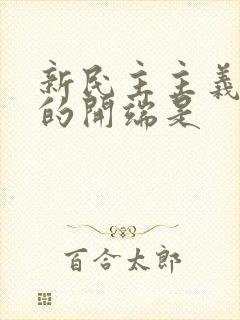 新民主主義
的開端是
百合太郎